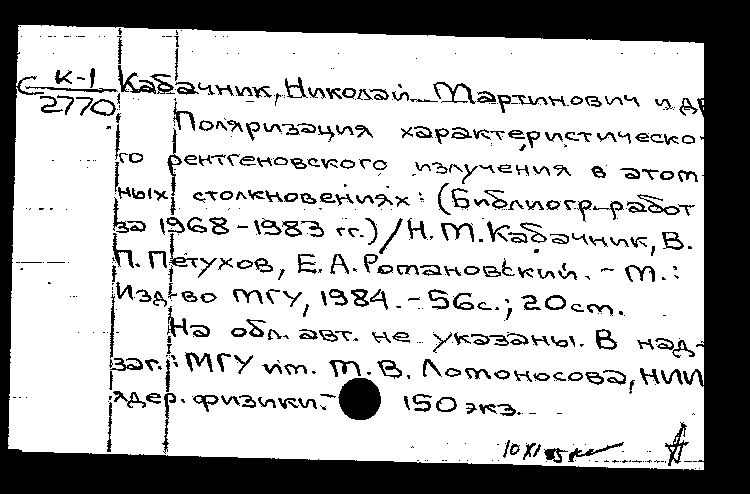 С К-1 Кабачник, Николай Мартинович и др
2770
Поляризация характеристическо-
го рентгеновского излучения в атом-
ных столкновениях: (Библиогр. работ
за 1968-1983 гг.) / Н. М. Кабачник, В.
П. Петухов, Е. А. Романовский. - М.:
Изд-во МГУ, 1984. - 56с.; 20см.
На обл. авт. не указаны. В над-
заг.: МГУ им. М. В. Ломоносова, НИИ
ядер. физики. - 150 экз.
10 XI 85